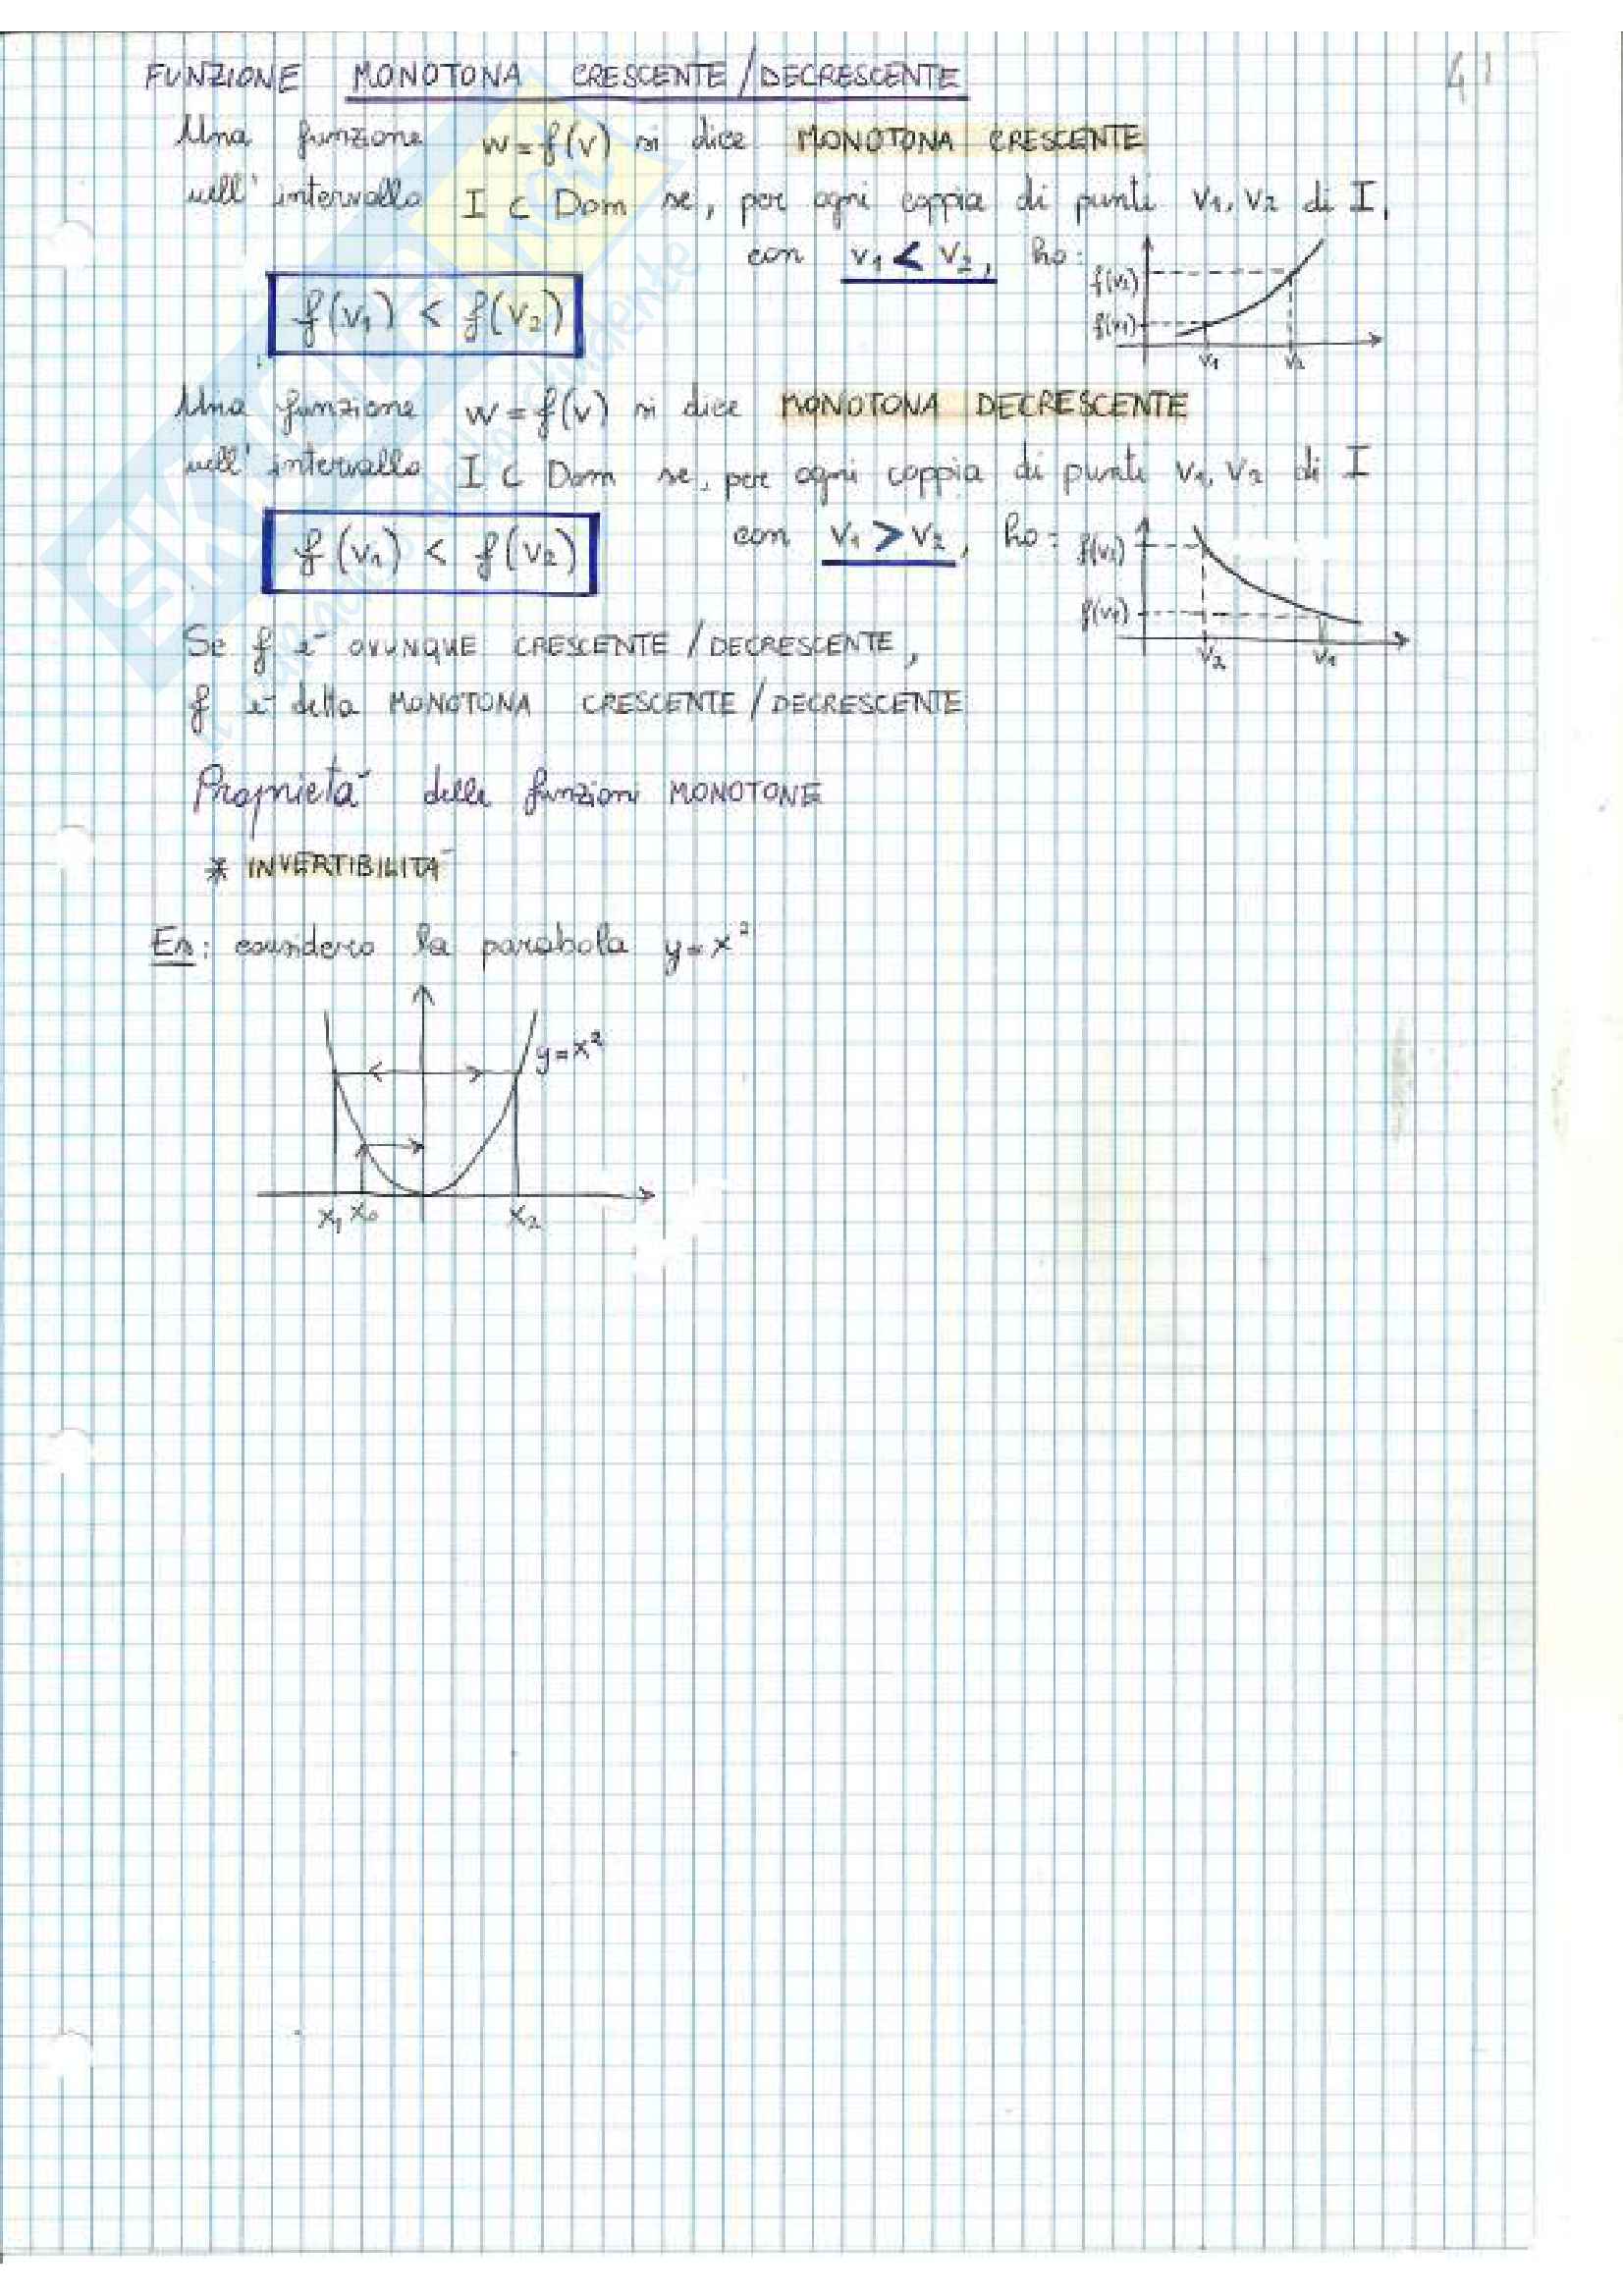 41
FUNZIONE MONOTONA CRESCENTE/DECRESCENTE
Una funzione w=f(v) si dice MONOTONA CRESCENTE
nell' intervallo I ⊂ Dom se, per ogni coppia di punti v1, v2 di I,
con v1 < v2, ho:
f(v1) < f(v2)
f(v2)
f(v1)
v1 v2
Una funzione w=f(v) si dice MONOTONA DECRESCENTE
nell' intervallo I ⊂ Dom se, per ogni coppia di punti v1, v2 di I
con v1 > v2, ho:
f(v1) < f(v2)
f(v2)
f(v1)
v2 v1
Se f è OVUNQUE CRESCENTE/DECRESCENTE,
f è detta MONOTONA CRESCENTE/DECRESCENTE
Proprietà delle funzioni MONOTONE
* INVERTIBILITÀ
Es: considero la parabola y=x²
y=x²
x1 x0 x2